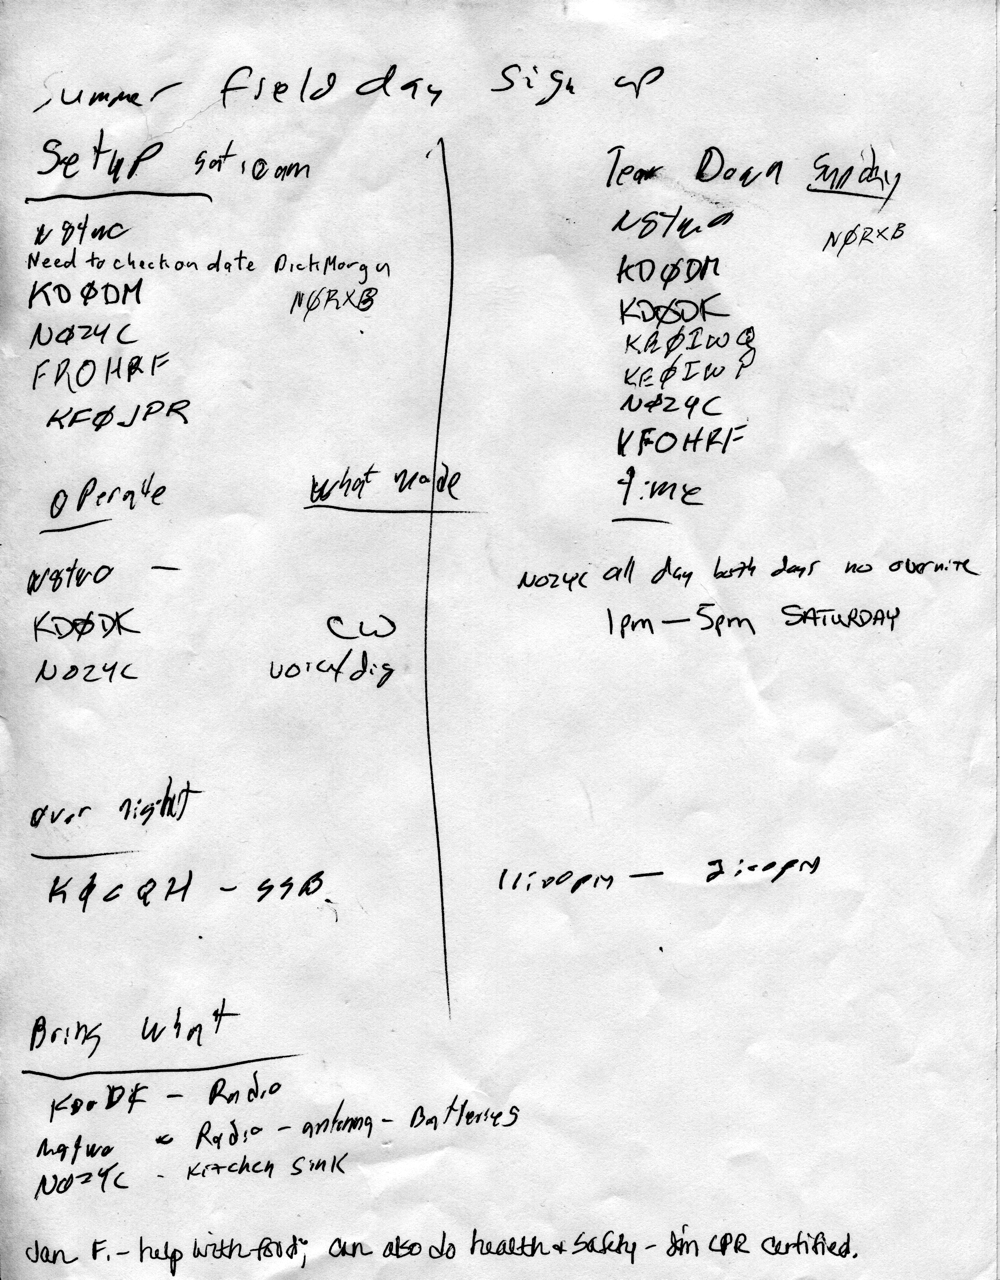 Summer field day sign up
Setup Sat 10am
N8TWO
Need to check on date Dick Morgan
KDØDM NØRXB
NØZYC
FROHRF
KFØJPR
Tear Down Sunday
N8TWO NØRXB
KDØDM
KDØDK
KRØIWQ
KEØIWP
NØZYC
KFOHRF
Operate What mode
time
N8TWO —
KDØDK CW
NOZYC voice/dig
NOZYC all day both days no overnite
1pm — 5pm SATURDAY
over night
KØCQH - SSB. 11:00pm — 2:00pm
Bring What
KDØDK - Radio
N8TWO - Radio - antenna - Batteries
NØZYC - Kitchen Sink
Jan F. - help with food; can also do health & safety - I'm CPR certified.